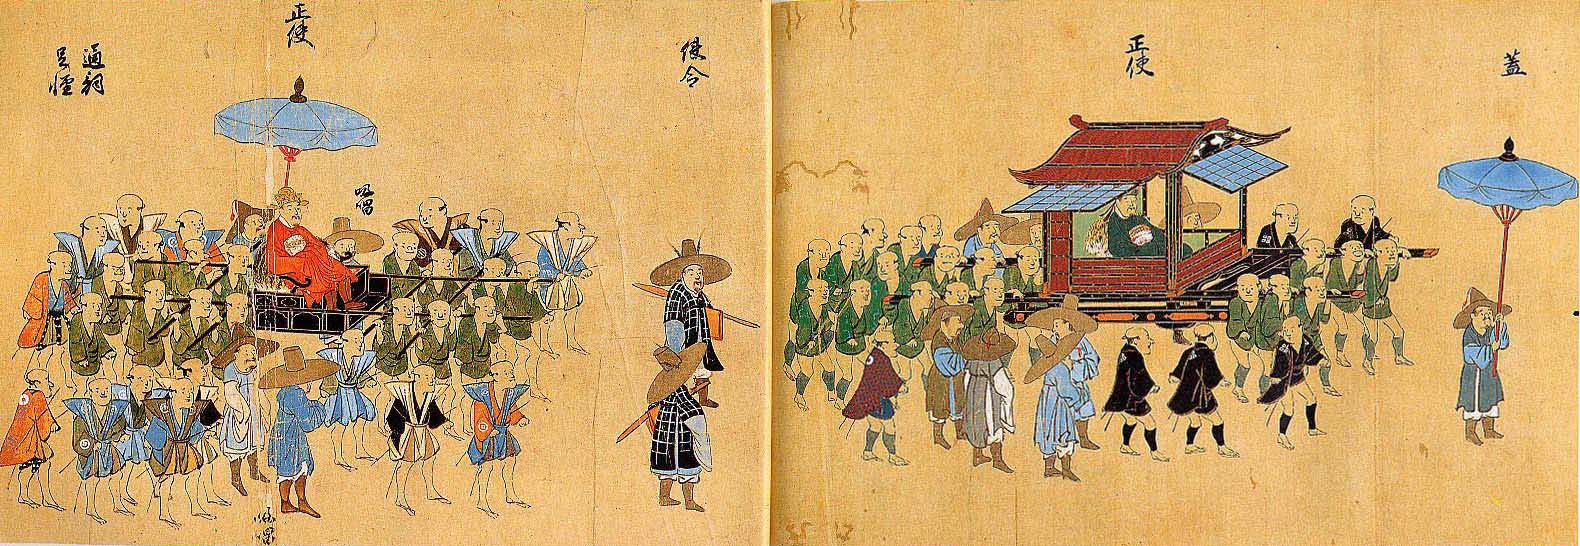 蓋
正使
使令
吸唱
正使
通詞